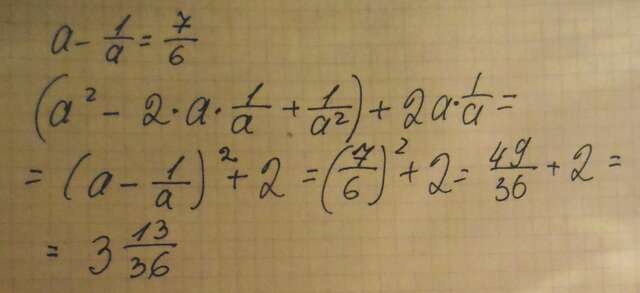 a - 1/a = 7/6
(a² - 2·a·1/a + 1/a²) + 2a·1/a =
= (a - 1/a)² + 2 = (7/6)² + 2 = 49/36 + 2 =
= 3 13/36